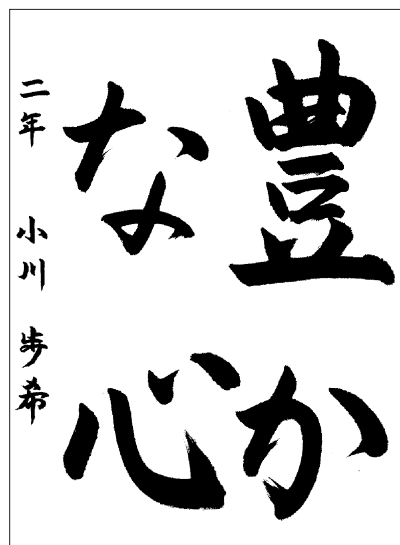 豊か
な心
二年 小川 歩希